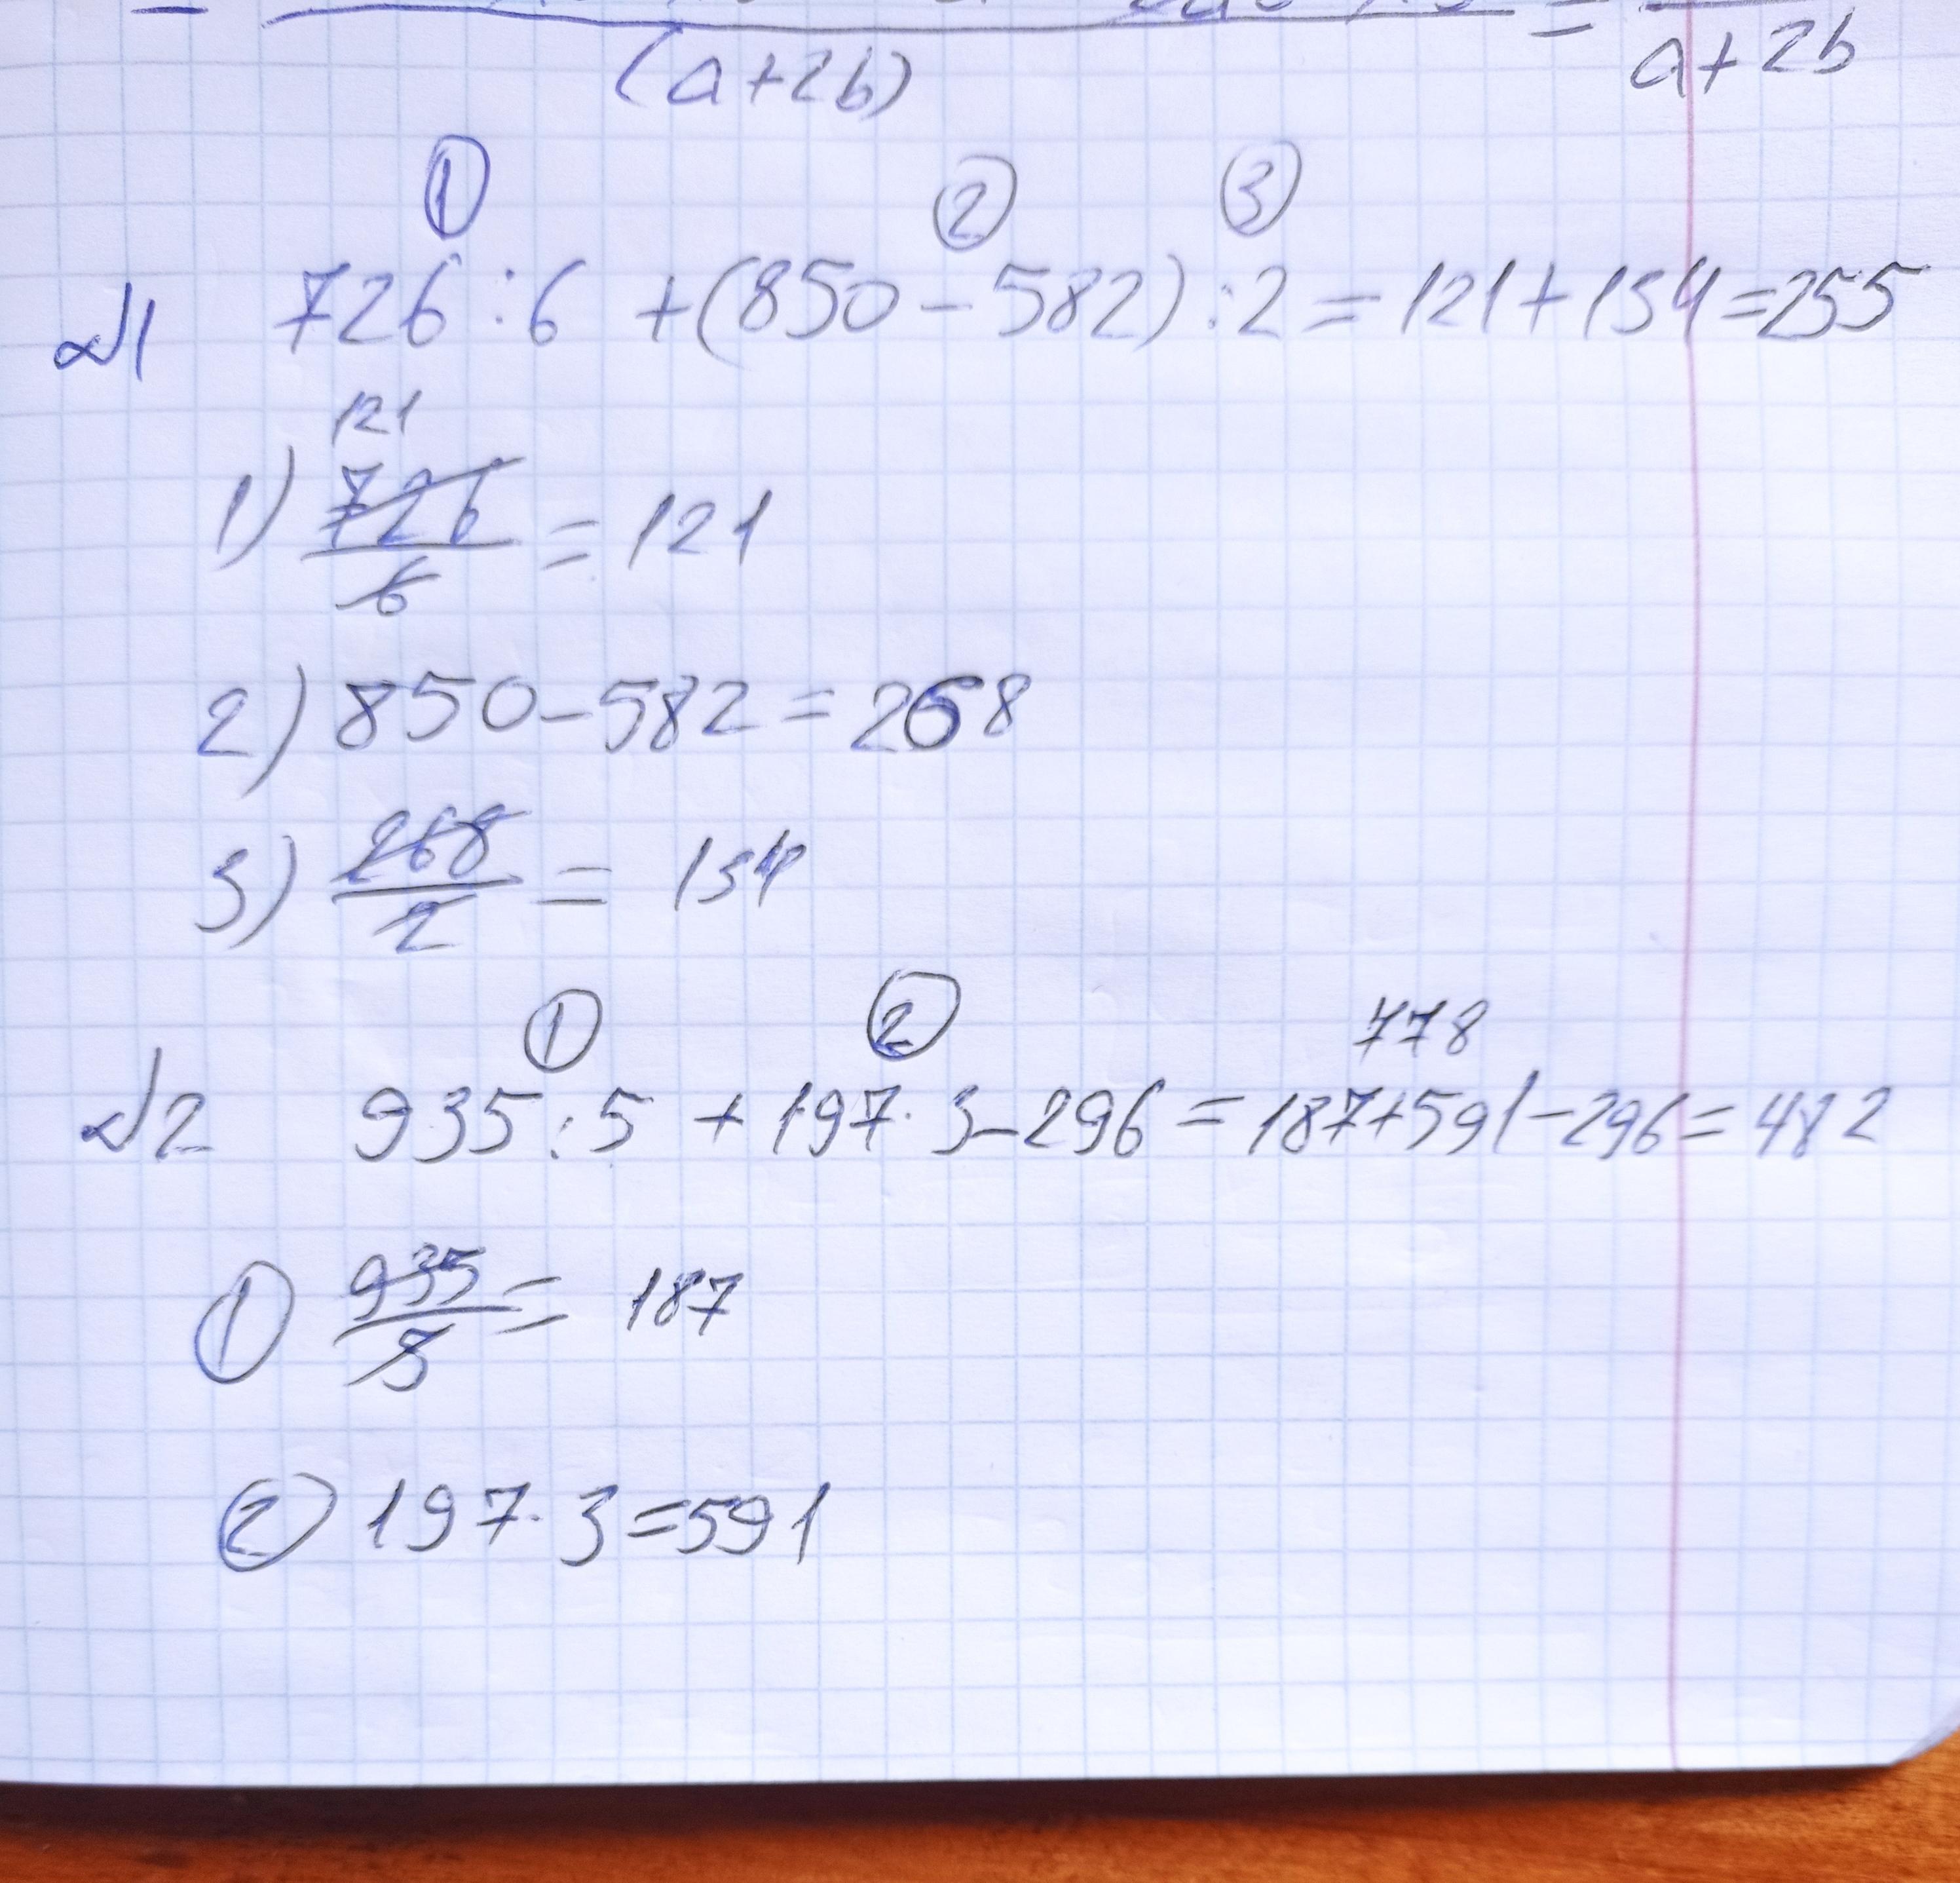 (a+2b) = a+2b
① ② ③
№1 726:6 +(850-582):2=121+134=255
121
1) 726/6 = 121
2) 850-582=268
3) 268/2 = 134
① ② 778
№2 935:5 + 197·3-296=187+591-296=482
① 935/5 = 187
② 197·3=591